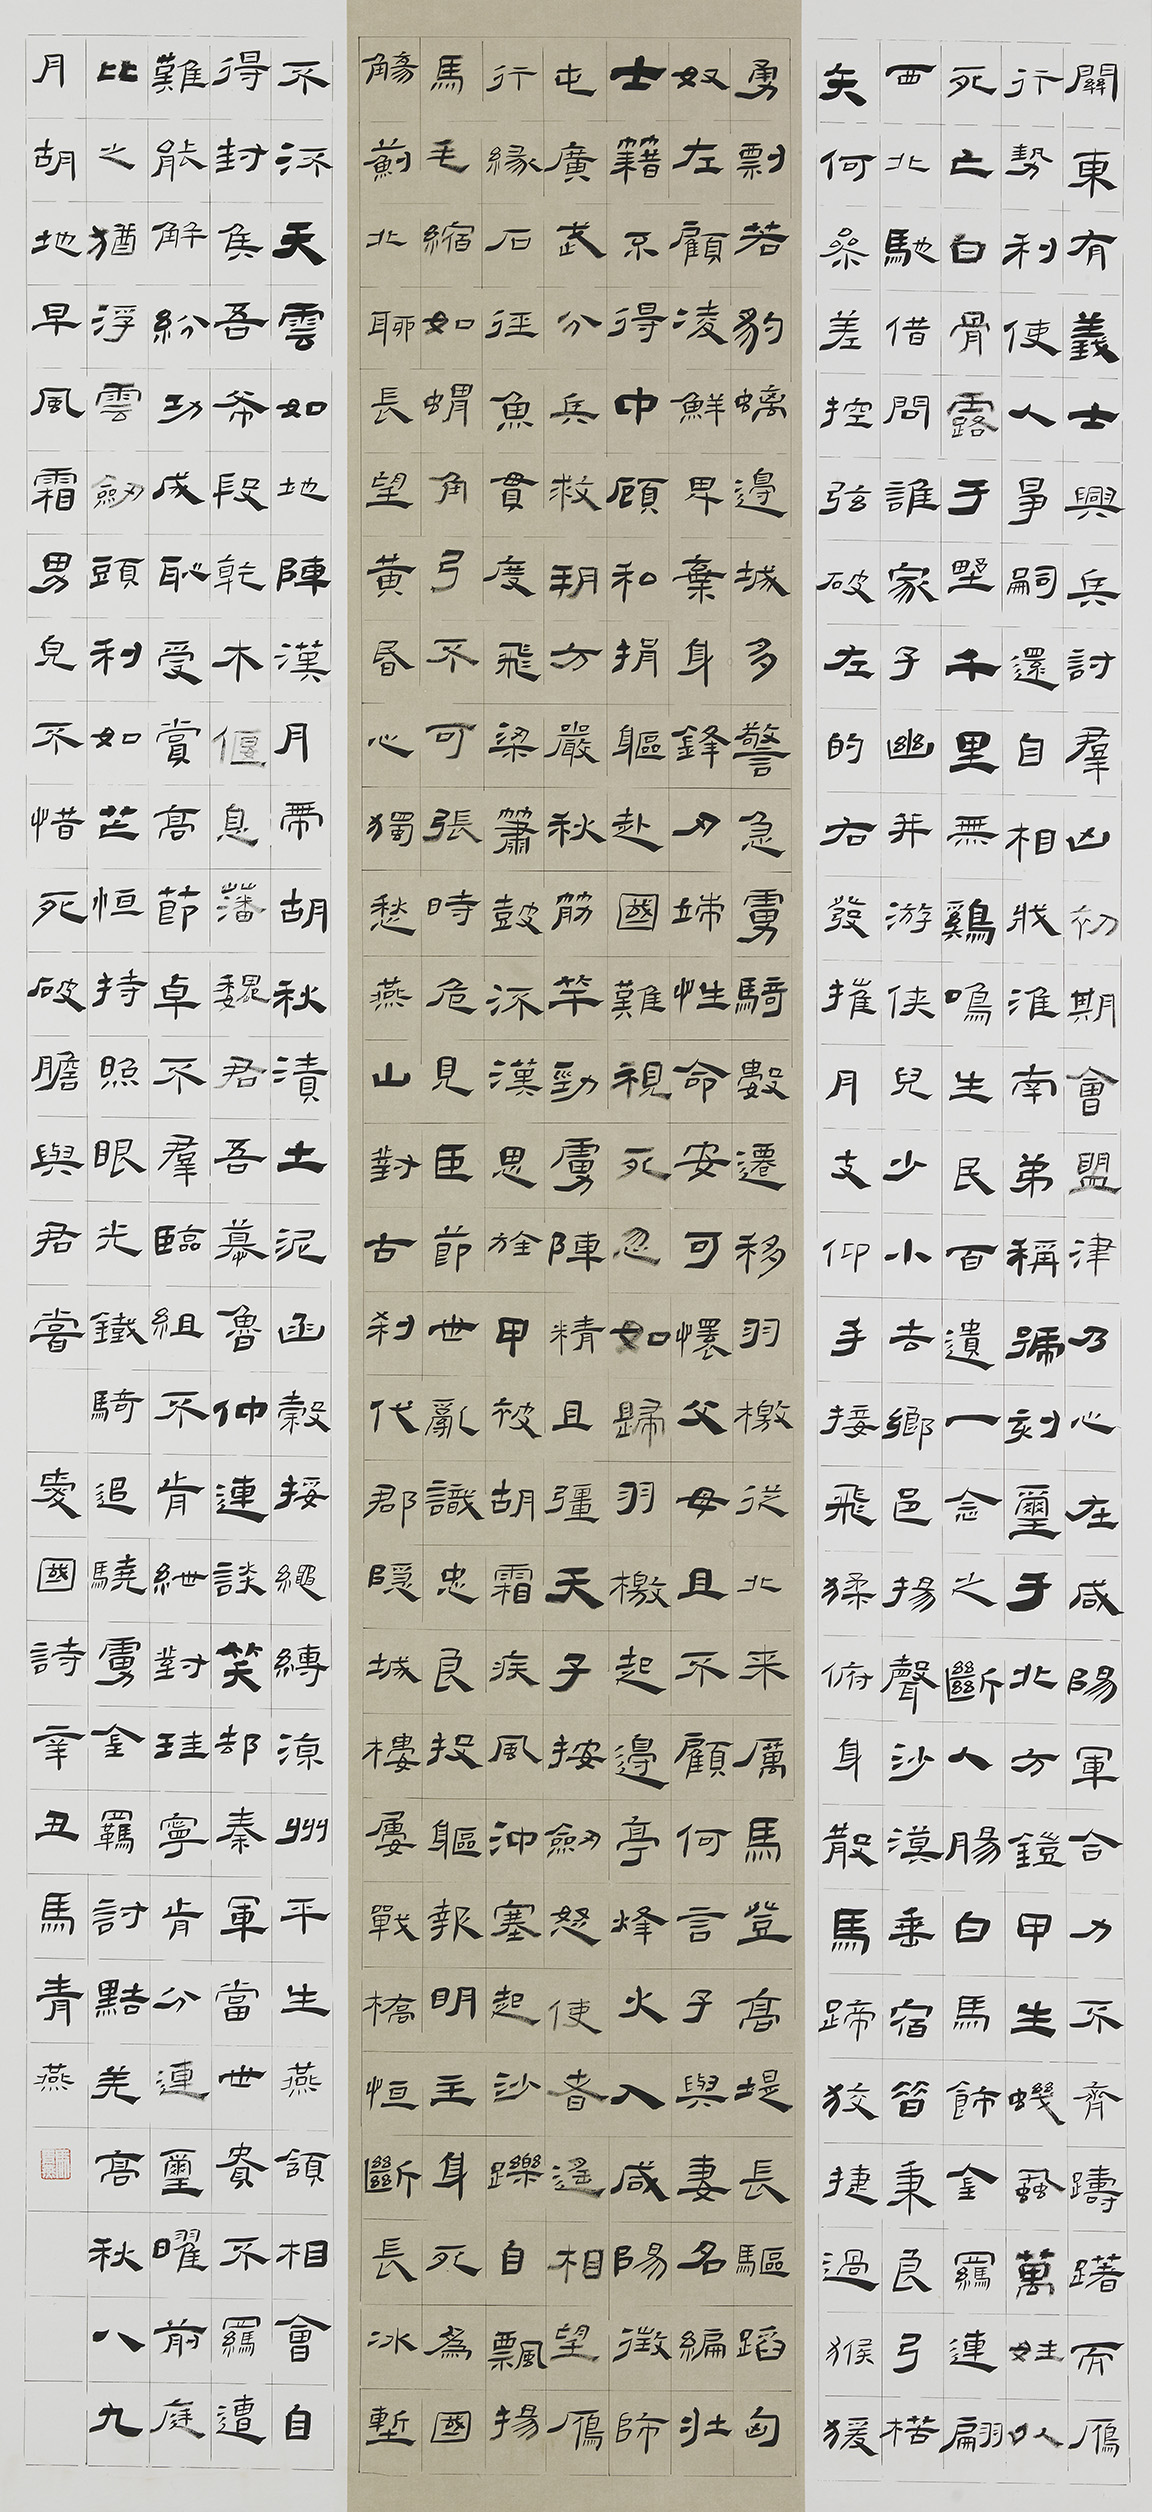 關東有義士興兵討羣凶初期會盟津乃心在咸陽軍合力不齊躊躇而雁
行勢利使人爭嗣還自相戕淮南弟稱號刻璽于北方鎧甲生蟣蝨萬姓以
死亡白骨露于野千里無雞鳴生民百遺一念之斷人腸白馬飾金羈連翩
西北馳借問誰家子幽并游俠兒少小去鄉邑揚聲沙漠垂宿昔秉良弓楛
矢何參差控弦破左的右發摧月支仰手接飛猱俯身散馬蹄狡捷過猴猨
勇剽若豹螭邊城多警急虜騎數遷移羽檄從北来厲馬登高堤長驅蹈匈
奴左顧凌鮮卑棄身鋒刃端性命安可懷父母且不顧何言子與妻名編壯
士籍不得中顧和捐軀赴國難視死忽如歸羽檄起邊亭烽火入咸陽徵師
屯廣武分兵救朔方嚴秋筋竿勁虜陣精且彊天子按劍怒使者遙相望雁
行緣石徑魚貫度飛梁簫鼓流漢思旌甲被胡霜疾風沖塞起沙礫自飄揚
馬毛縮如蝟角弓不可張時危見臣節世亂識忠良投軀報明主身死為國
觴薊北聊長望黃昏心獨愁燕山對古刹代郡隱城樓屢戰橋恒斷長冰塹
不流天雲如地陣漢月帶胡秋漬土泥函穀挼繩縛涼州平生燕頷相會自
得封侯吾希段乾木偃息藩魏君吾慕魯仲連談笑却秦軍當世貴不羈遭
難能解紛功成恥受賞高節卓不羣臨組不肯紲對珪寧肯分連璽曜前庭
比之猶浮雲劍頭利如芒恒持照眼光鐵騎追驍虜金羈討黠羌高秋八九
月胡地早風霜男兒不惜死破膽與君嘗 愛國詩辛丑馬青燕